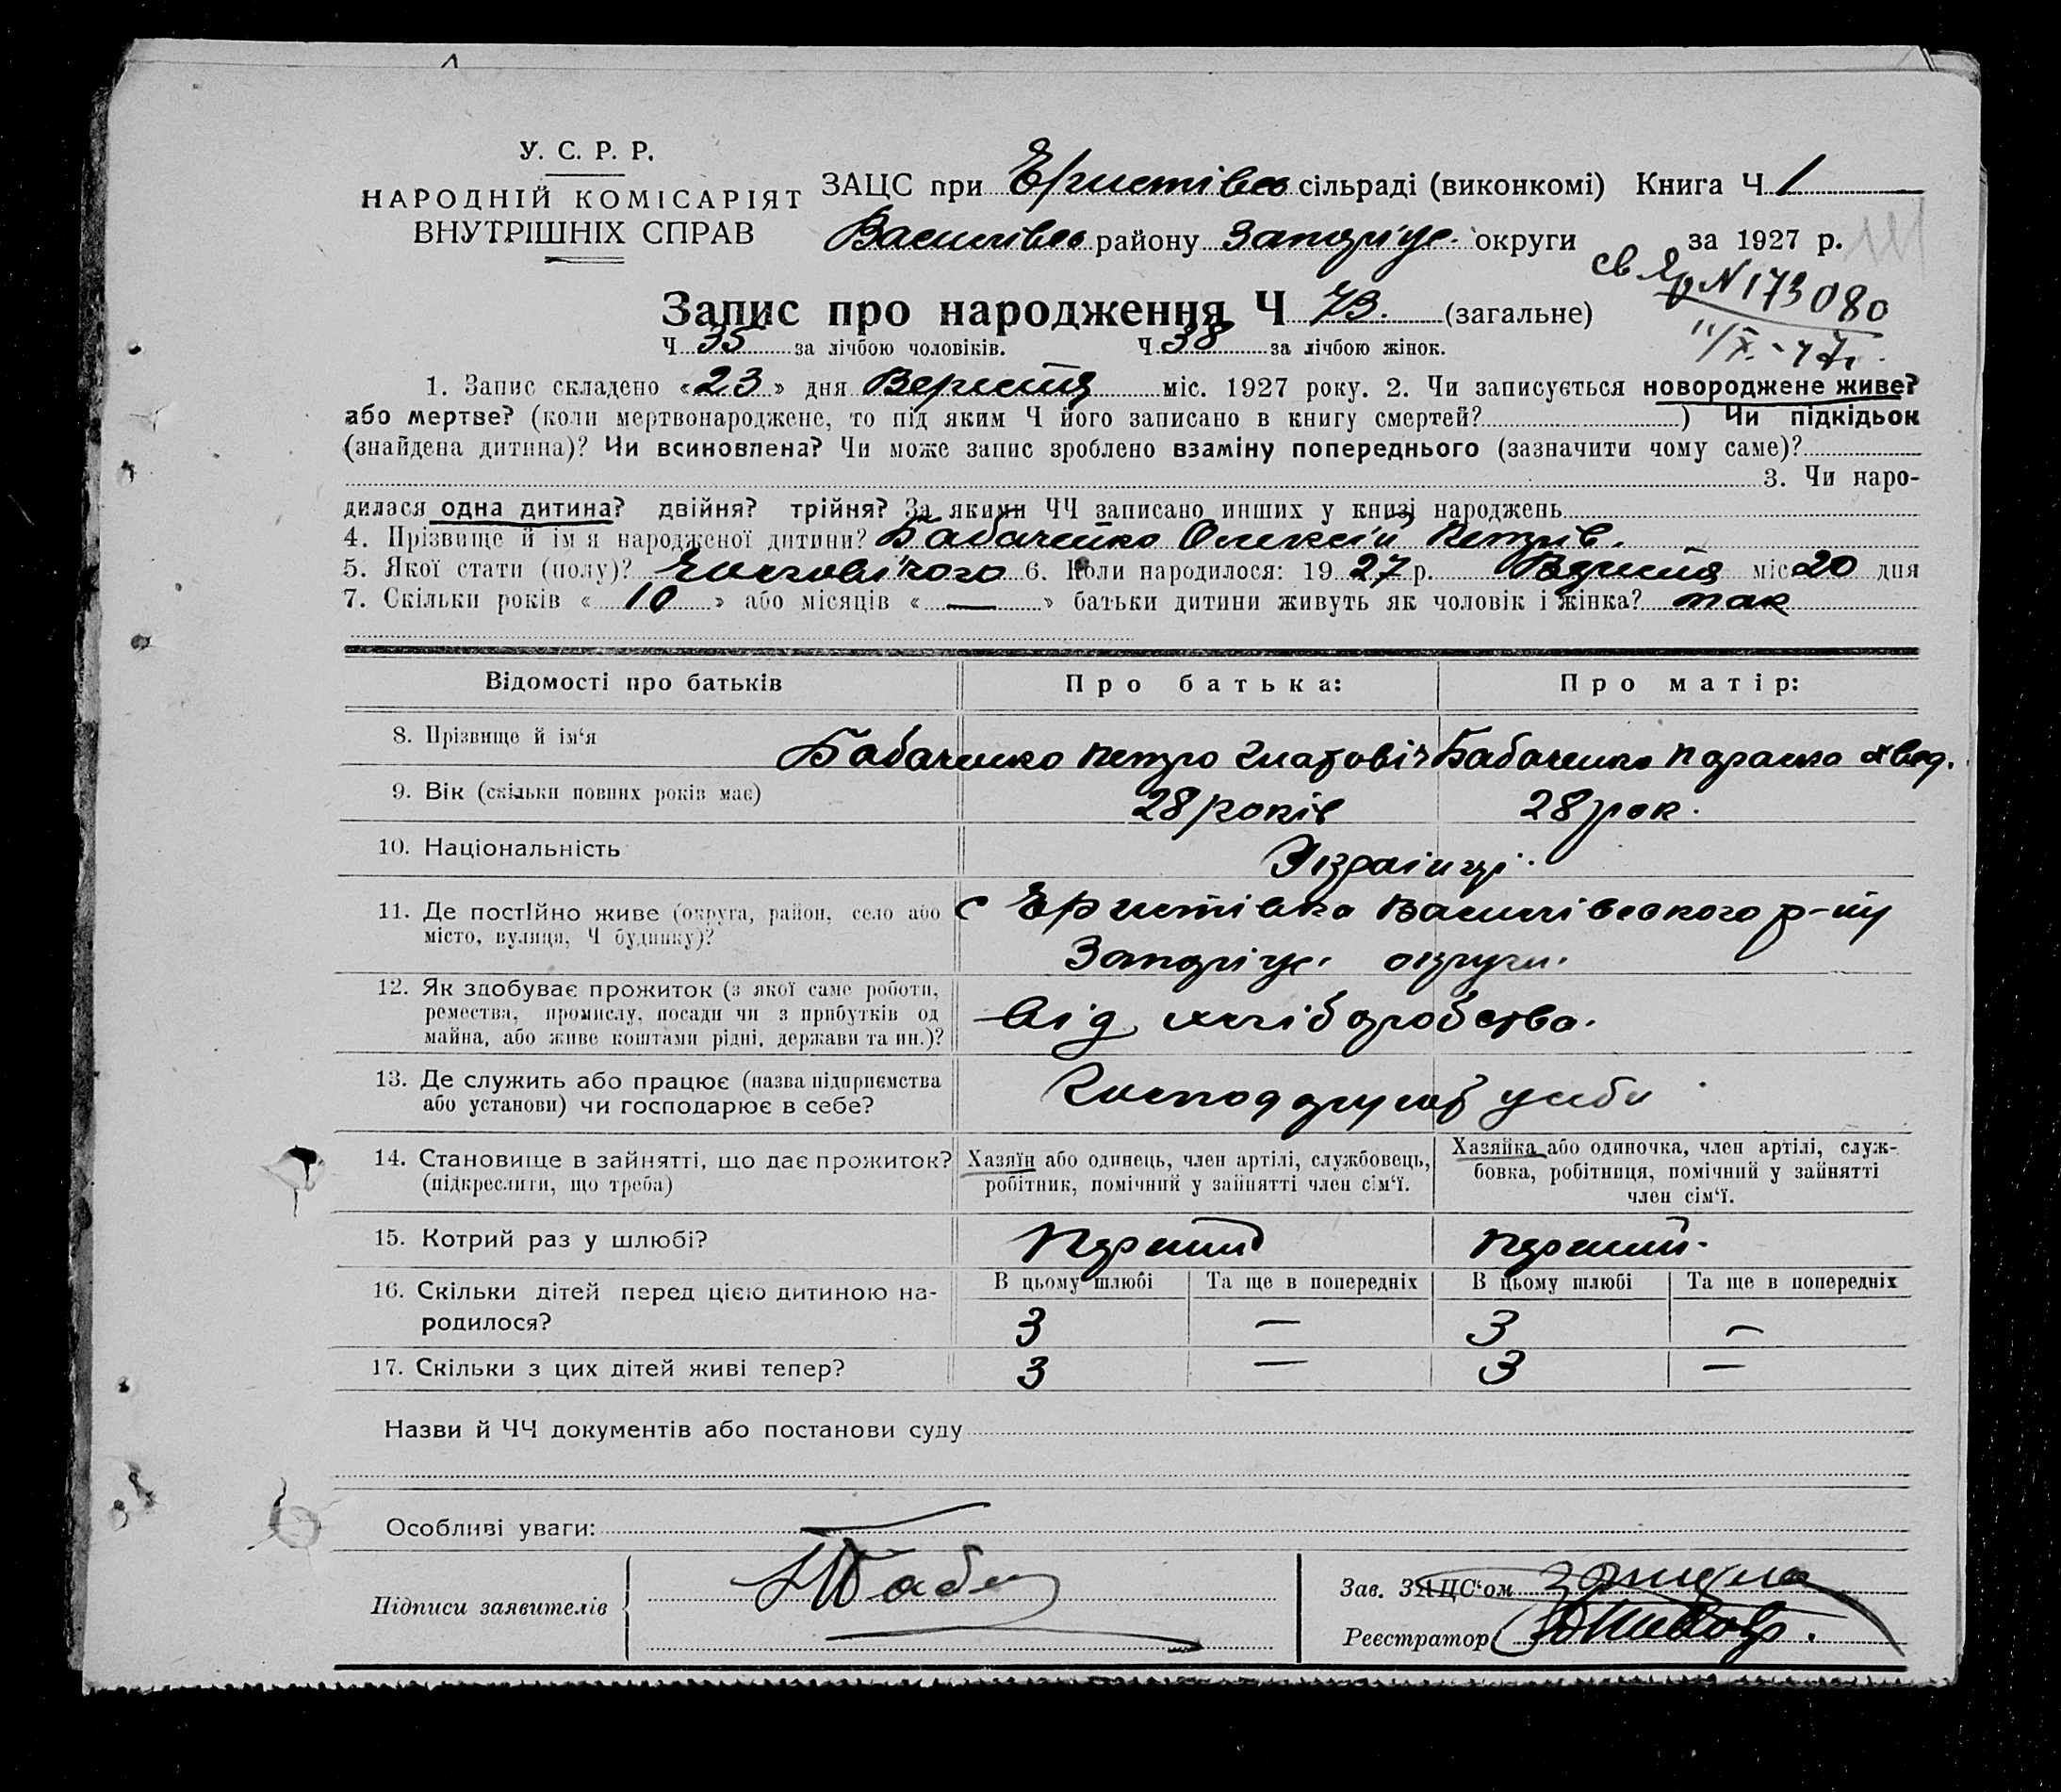 У. С. Р. Р.
НАРОДНІЙ КОМІСАРІЯТ
ВНУТРІШНІХ СПРАВ
ЗАЦС при Єристівсь сільраді (виконкомі) Книга Ч 1
Василівсь району Запоріж. округи за 1927 р.
св. ЯР N 173080
11/X - 47г.
Запис про народження Ч 73. (загальне)
Ч 35 за лічбою чоловіків. Ч 38 за лічбою жінок.
1. Запис складено «23» дня Вересня міс. 1927 року. 2. Чи записується новороджене живе?
або мертве? (коли мертвонароджене, то під яким Ч його записано в книгу смертей? ) Чи підкідьок
(знайдена дитина)? Чи всиновлена? Чи може запис зроблено взаміну попереднього (зазначити чому саме)?
3. Чи наро-
дилася одна дитина? двійня? трійня? За якими ЧЧ записано инших у книзі народжень
4. Прізвище й ім'я народженої дитини? Бабаченко Олексій Петрів.
5. Якої стати (полу)? Чоловічого 6. Коли народилося: 1927 р. Вересня міс 20 дня
7. Скільки років «10» або місяців «—» батьки дитини живуть як чоловік і жінка? так
Відомості про батьків Про батька: Про матір:
8. Прізвище й ім'я Бабаченко Петро Бабаченко Параска
9. Вік (скільки повних років має) 28 років 28 рок.
10. Національність Українці.
11. Де постійно живе (округа, район, село або с Єристівка Василівського р-ну
місто, вулиця, Ч будинку)? Запоріж. округи.
12. Як здобуває прожиток (з якої саме роботи,
ремества, промислу, посади чи з прибутків од
майна, або живе коштами рідні, держави та ин.)? Від хліборобства.
13. Де служить або працює (назва підприємства
або установи) чи господарює в себе? у себе
14. Становище в зайнятті, що дає прожиток? Хазяїн або одинець, член артілі, службовець, Хазяйка або одиночка, член артілі, служ-
(підкреслити, що треба) робітник, помічний у зайнятті член сім'ї. бовка, робітниця, помічний у зайнятті
член сім'ї.
15. Котрий раз у шлюбі? Перший перший.
16. Скільки дітей перед цією дитиною на- В цьому шлюбі Та ще в попередніх В цьому шлюбі Та ще в попередніх
родилося? 3 — 3 —
17. Скільки з цих дітей живі тепер? 3 — 3 —
Назви й ЧЧ документів або постанови суду
Особливі уваги:
Підписи заявителів
Зав. ЗАЦС'ом
Реєстратор